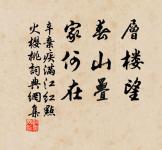 層樓望
春山疊
家何在
辛棄疾滿江紅點
火櫻桃詞典網集